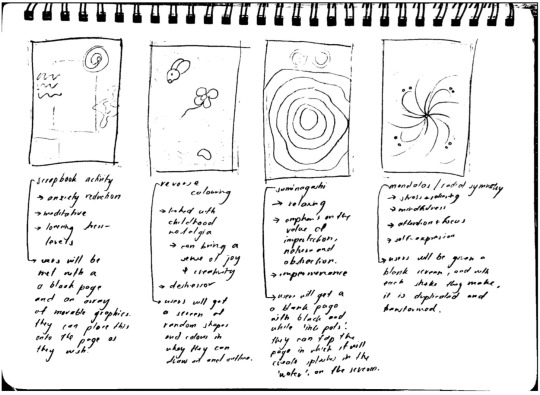 scrapbook activity
→ anxiety reduction
→ meditative
→ lowering stress-
levels
→ users will be
met with a
a blank page
and an array
of movable graphics.
they can place this
onto the page as
they wish.
reverse
colouring
→ linked with
childhood
nostalgia
→ can bring a
sense of joy
+ creativity
→ destressor
→ users will get
a screen of
random shapes
and colours in
they can
draw an outline.
suminagashi
→ relaxing
→ emphasis on the
value of
imperfection,
nature and
abstraction.
→ impermanence
→ users will get a
a blank page
with black and
white 'ink pots'.
they can tap the
page in which it will
create splashes in the
'water', on the screen.
mandalas / radial symmetry
→ stress relieving
→ mindfulness
→ attention + focus
→ self-expression
→ users will be given a
blank screen, and with
each stroke they make,
it is duplicated and
transformed.